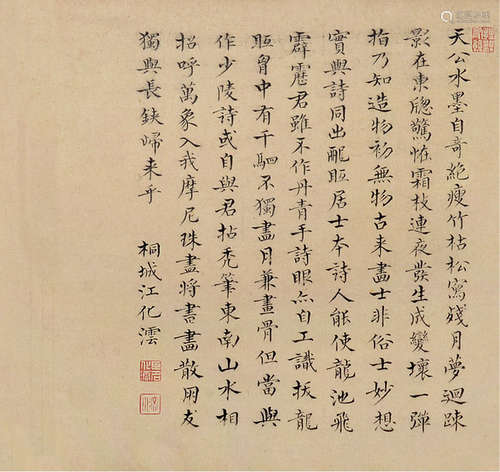 天公水墨自奇絕瘦竹枯松寫殘月夢迴踈
影在東牕驚怪霜枝連夜發生成變壞一彈
指乃知造物初無物古来畫士非俗士妙想
實與詩同出龍眠居士本詩人能使龍池飛
霹靂君雖不作丹青手詩眼亦自工識拔龍
眠胷中有千駟不獨畫月兼畫骨但當與
作少陵詩或自與君拈禿筆東南山水相
招呼萬象入我摩尼珠盡將書畫散朋友
獨與長鋏歸来乎 桐城江化澐